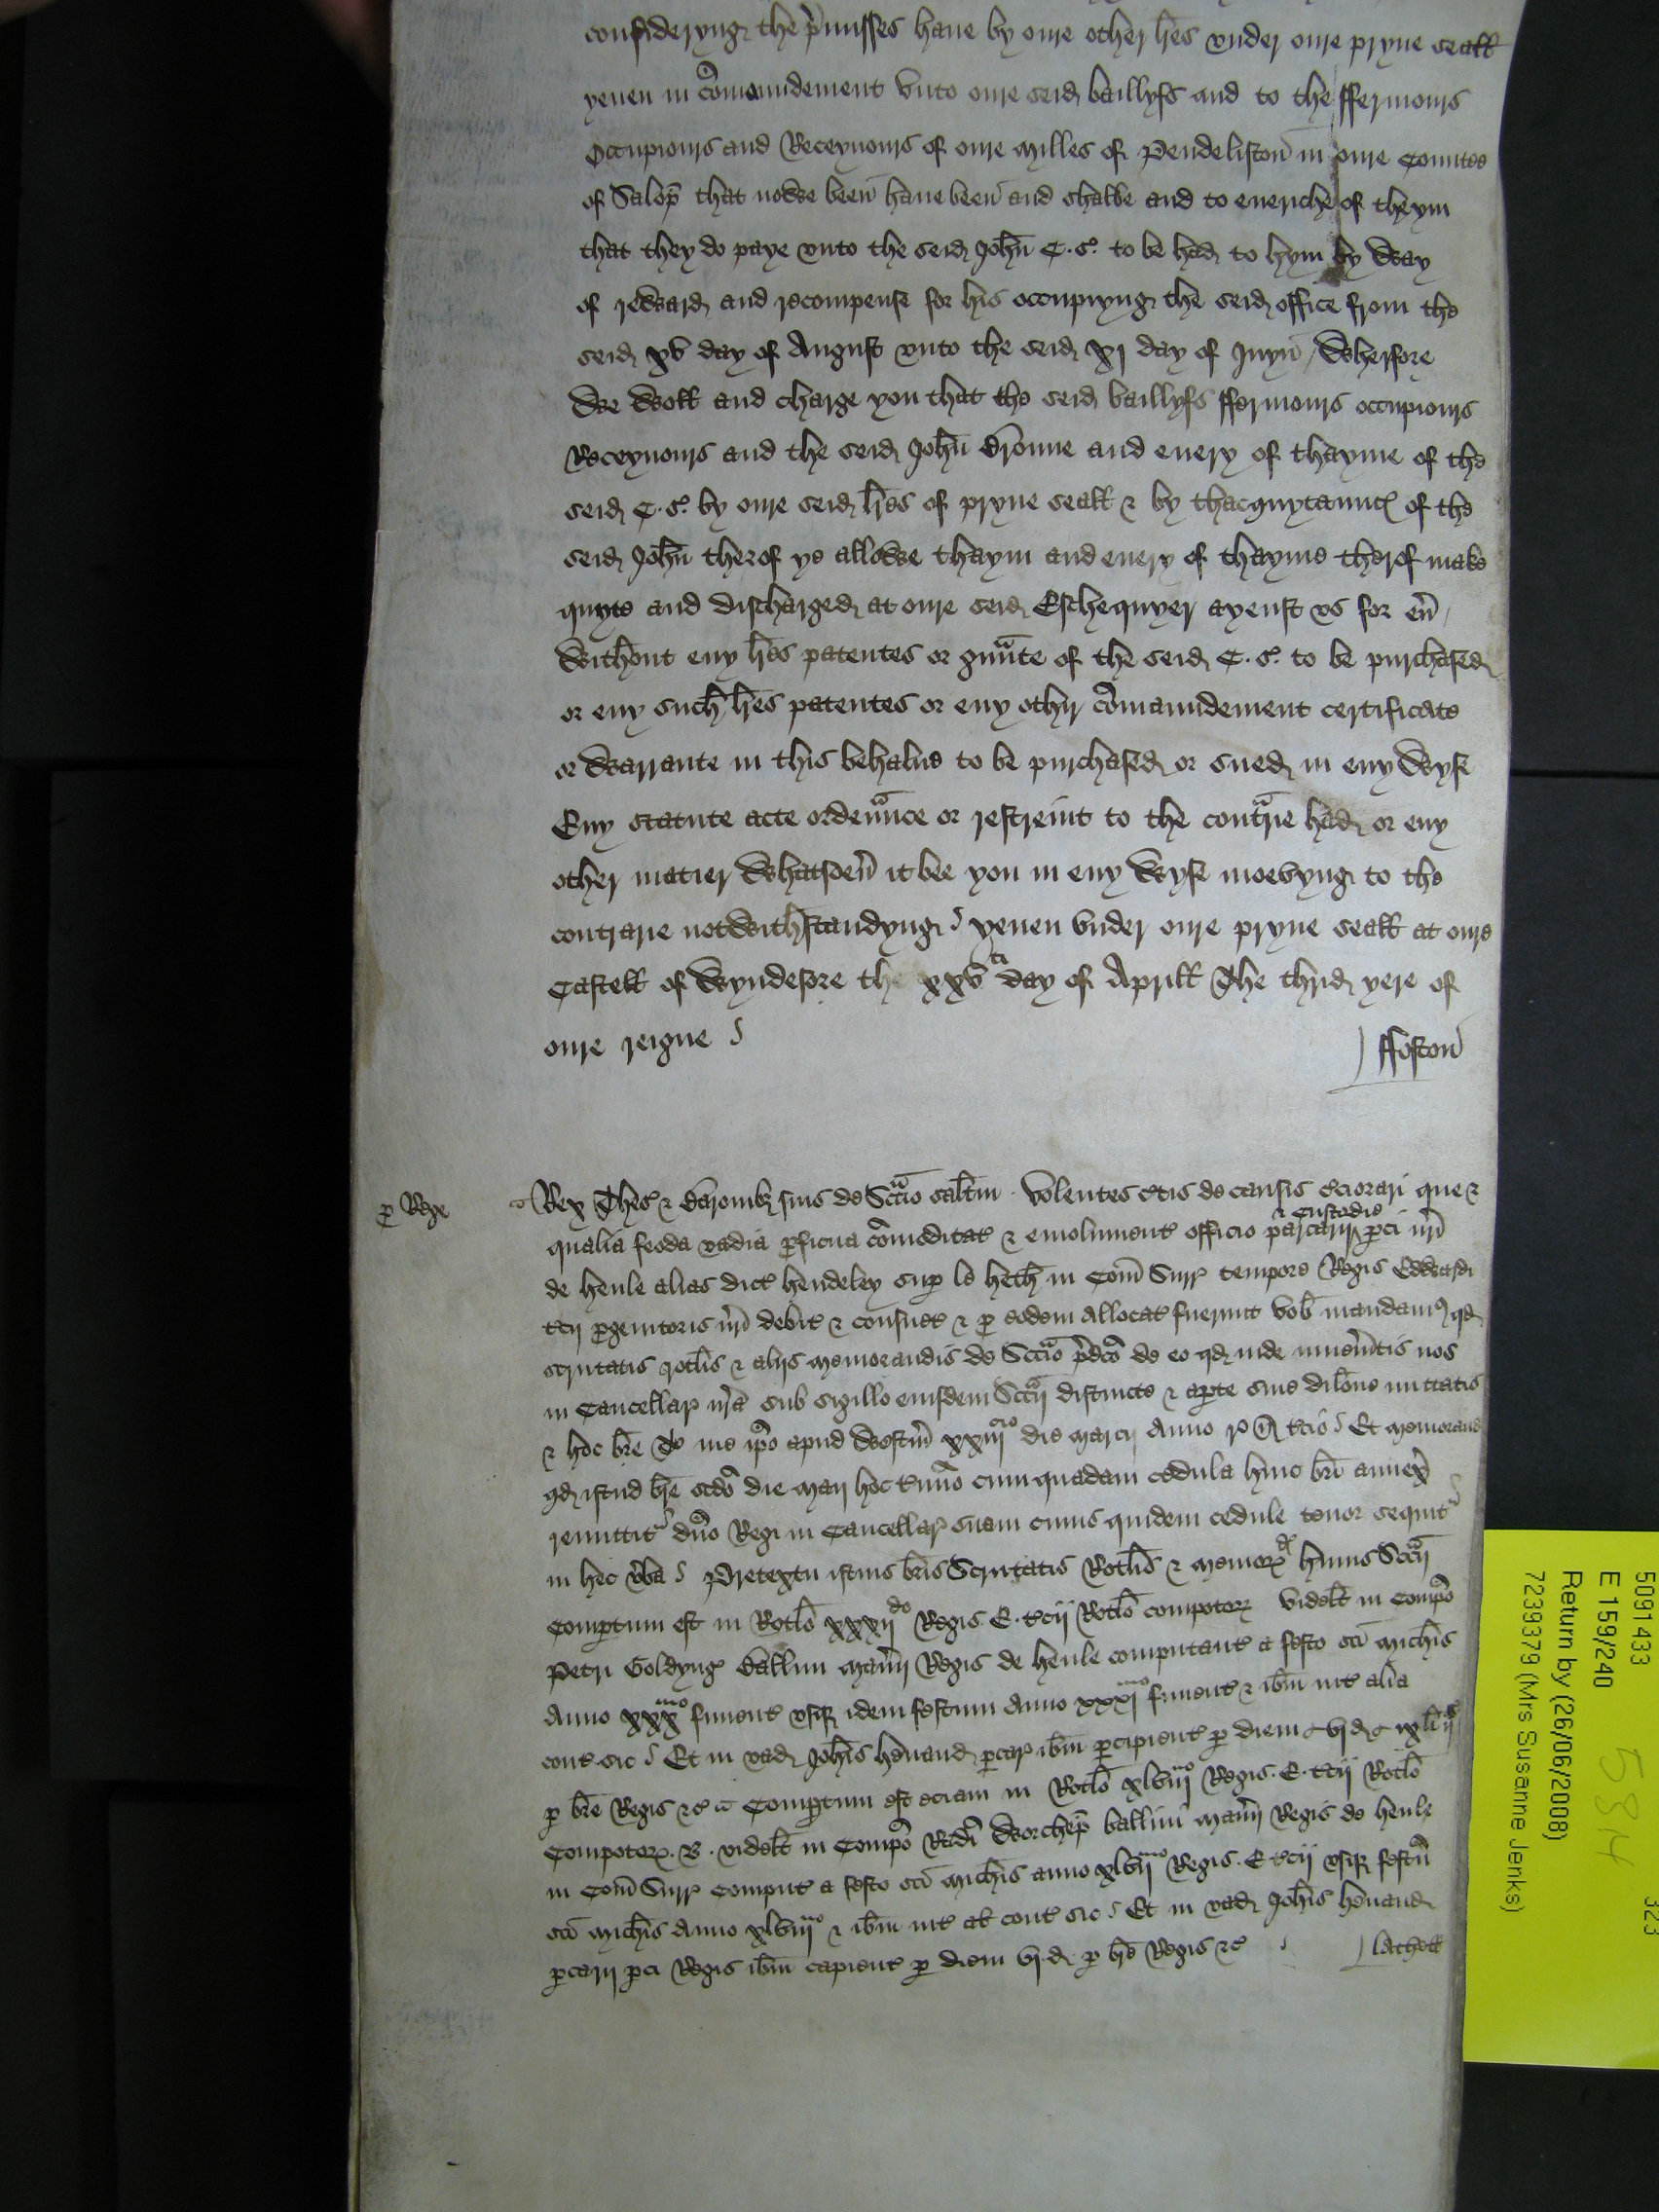 consideryng the p̃misses haue by oure other lr̃es vnder oure pryue seall
yeuen in cõmaundement vnto oure seid baillyfs and to the ffermours
Occupiours and Receyuours of oure milles of Pendeliston in oure Countee
of Salop̃ that nowe been haue been and shalbe and to eueriche of theym
that they do paye vnto the seid Joh̃n C. s. to be had to hym by way
of reward and recompense for his occupiyng the seid office from the
seid xv day of August vnto the seid xj day of Juyn / Wherfore
We woll and charge you that the seid baillyfs ffermours occupiours
Receyuours and the seid Joh̃n Bronne and euery of thayme of the
seid C. s. by oure seid lr̃es of pryue seall & by thacquytaunce of the
seid Joh̃n therof ye allowe thaym and euery of thayme therof make
quyte and discharged at oure seid Eschequyer ayenst vs for eũ /
Without eny lr̃es patentes or gũnte of the seid C. s. to be purchased
or eny such lr̃es patentes or eny othir cõmaundement certificate
or warrante in this behalue to be purchased or sued in eny wyse
Eny statute acte ordeñnce or restreint to the contr̃ie had or eny
other matier whatsoeũ it bee you in eny wyse moevyng to the
contrarie notwithstandyng / yeuen vnder oure pryue seall at oure
Castell of Wyndesore the xxv ti day of Aprill The thrid yere of
oure reigne /
ffoston
p Rege
Rex Thes & Baronibȝ suis de Sccio salt̃m . Volentes c̃tis de causis c̃ciorari que &
qualia feoda vadia p̃ficua cõmoditat & emolument officio parcarij & custodie p̃ci nr̃i
de henle alias dict hendeley sup le heth in Com̃ Surr tempore Regis Edwardi
t̃cij p̃genitoris nr̃i debit & consuet & p eodem allocat fuerunt vob̃ mandamꝰ qd
scrutatis rotlis & alijs memorandis de Sccio p̃dc̃o de eo qd inde inueñitis nos
in Cancellar nr̃a sub sigillo eiusdem Sccij distincte & ap̃te sine dilone mittatis
& hoc br̃e T me ip̃o apud Westm̃ xxiiij to die marcij Anno r̃ n̄ t̃cio / Et memorand
qd istud br̃e scdo die maij hoc t̃mio cum quadam cedula huic br̃i annex̃
remittit dño Regi in Cancellar suam cuius quidem cedule tenor sequit
in hec v̄ba / Pretextu istius br̃is Scrutatis Rotlis & memor huius Sccij
Comp̃tum est in Rotlo xxxij do Regis . E . t̃cij Rotlo compotor videlt in Compo
Petri Goldyng balliui mañij Regis de henle computant a festo sci Mich̃is
Anno xxx mo finient vsqȝ idem festum Anno xxxj mo finient & ibm̃ int alia
cont. sic / Et in vad Joh̃is henand p̃car ibm̃ p̃cipient p diem vj d ix li
p br̃e Regis &c Comp̃tum est eciam in Rotlo xlviij uo Regis . E . t̃cij Rotlo
Compotor . B . videlt in Compo Radi Worchep̃ balliui mañij Regis de henle
in Com̃ Surr comput a festo sci Mich̃is anno xlvij mo Regis . E t̃cij vsqȝ festũ
sci Mich̃is Anno xlviij uo & ibm̃ int al cont sic / Et in vad Joh̃is henand
p̃carij p̃ci Regis ibm̃ capient p diem vj d . p br̃e Regis &c /
Lathell
5091433
E 159/240
Return by (26/06/2008)
7239379 (Mrs Susanne Jenks)
323